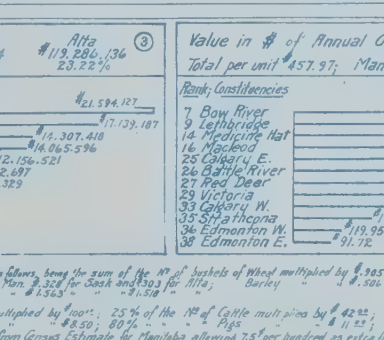 Alta ③
$119.286.136
23.22%
$21.594.127
$17.139.187
$14.307.418
$14.065.596
12.156.521
.697
.329
Value in $ of Annual O
Total per unit $457.97; Man
Rank; Constituencies
7 Bow River
9 Lethbridge
14 Medicine Hat
16 Macleod
25 Calgary E.
26 Battle River
27 Red Deer
29 Victoria
33 Calgary W.
35 Strathcona
36 Edmonton W. $119.95
38 Edmonton E. 91.72
follows, being the sum of the Nº of bushels of Wheat multiplied by $.905
Man. $.328 for Sask and $.303 for Alta; Barley " " $.506
" $1.563 " " $1.518 "
ultiplied by $100; 25% of the Nº of Cattle multiplied by $42
" " $8.50; 80% " " Pigs " " $11
from Census Estimate for Manitoba allowing 7.5 per hundred as extra